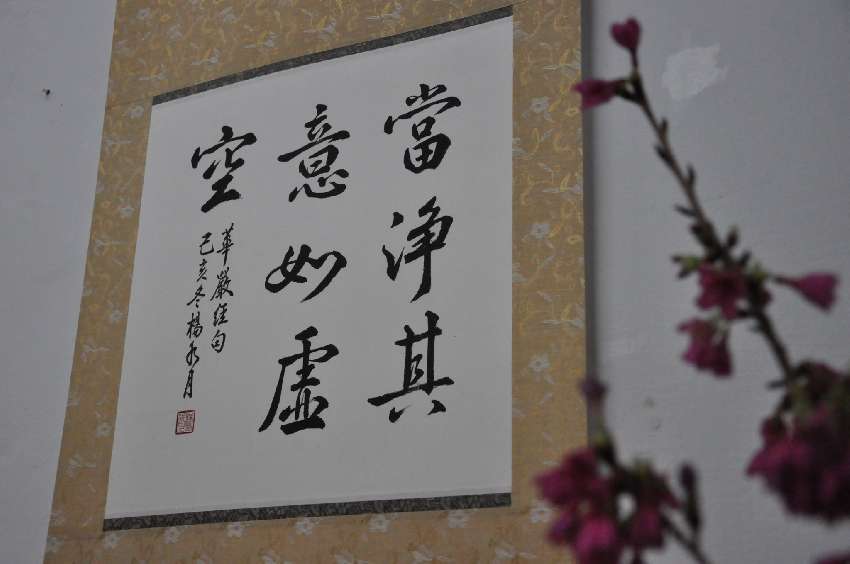 當淨其
意如虛
空
華嚴經句
己亥冬楊水月